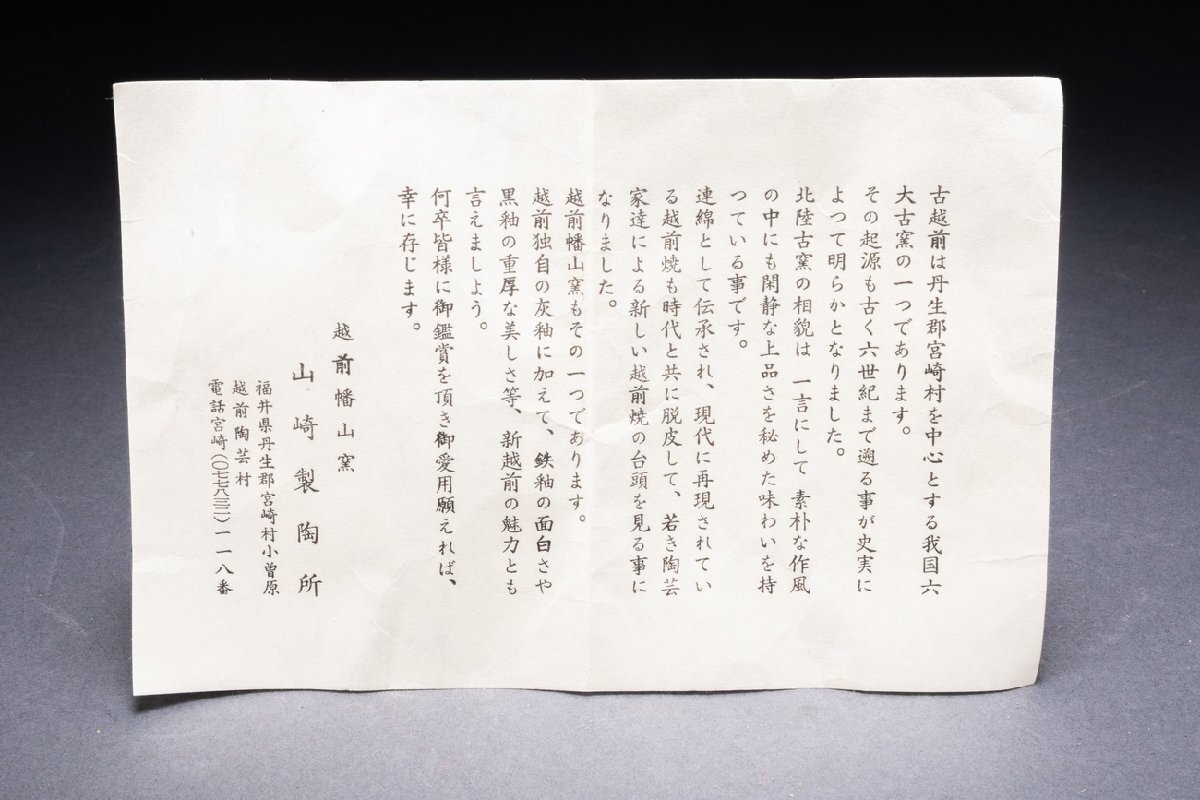 古越前は丹生郡宮崎村を中心とする我国六
大古窯の一つであります。
その起源も古く六世紀まで遡る事が史実に
よつて明らかとなりました。
北陸古窯の相貌は 一言にして 素朴な作風
の中にも閑静な上品さを秘めた味わいを持
つている事です。
連綿として伝承され、現代に再現されてい
る越前焼も時代と共に脱皮して、若き陶芸
家達による新しい越前焼の台頭を見る事に
なりました。
越前幡山窯もその一つであります。
越前独自の灰釉に加えて、鉄釉の面白さや
黒釉の重厚な美しさ等、新越前の魅力とも
言えましよう。
何卒皆様に御鑑賞を頂き御愛用願えれば、
幸に存じます。
越前幡山窯
山崎製陶所
福井県丹生郡宮崎村小曽原
越前陶芸村
電話宮崎(〇七七八三二)一一八番